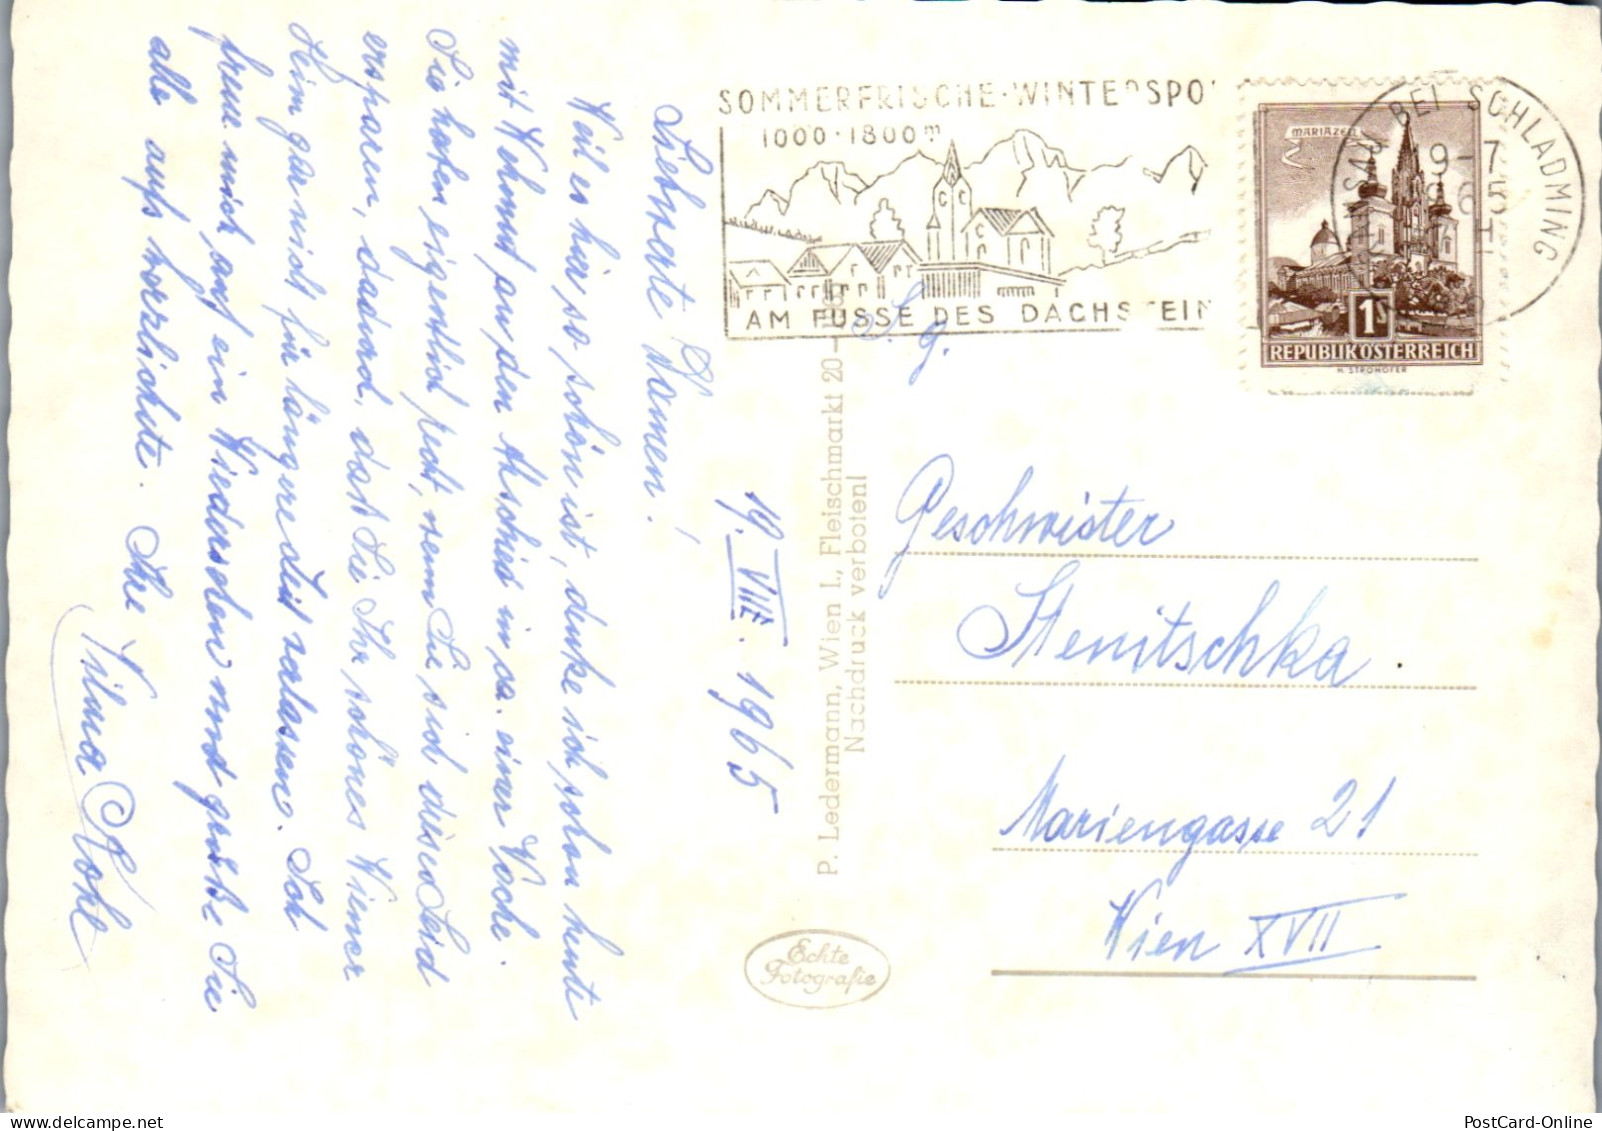 SOMMERFRISCHE · WINTERSPO
1000 · 1800 m
AM FUSSE DES DACHSTEIN
MARIAZELL
1S
REPUBLIK ÖSTERREICH
H. STROHOFER
BEI SCHLADMING
19-7
65
S. g.
Geschwister
Stenitschka.
Mariengasse 21
Wien XVII
P. Ledermann, Wien I., Fleischmarkt 20
Nachdruck verboten!
Echte
Fotografie
19. VIII. 1965
Liebwerte Damen!
Weil es hier so schön ist, denke ich schon heute
mit Wehmut an den Abschied in ca. einer Woche.
Sie haben eigentlich recht, wenn Sie sich dieses Leid
ersparen, dadurch, dass Sie Ihr schönes Wiener
Heim gar nicht für längere Zeit verlassen. Ich
freue mich auf ein Wiedersehen und grüße Sie
alle aufs herzlichste. Ihre
Vilma Kohl